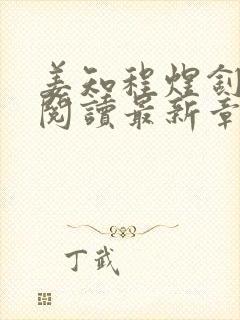 姜知程煌
閱讀最新章
丁武